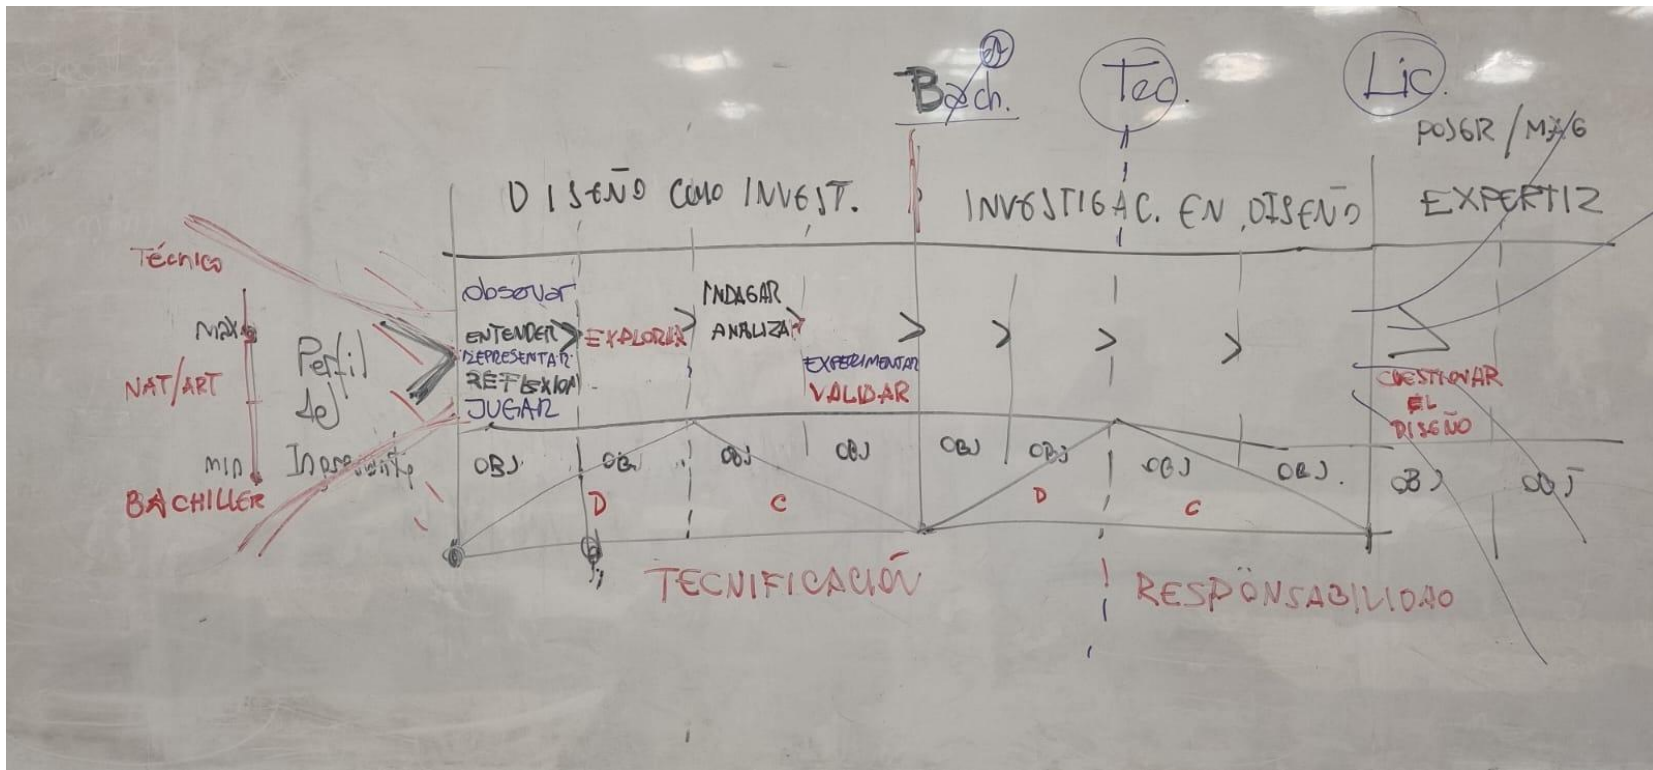 Bach.
Tec.
Lic.
POSGR / MAG
DISEÑO COMO INVEST.
INVESTIGAC. EN DISEÑO
EXPERTIZ
Técnico
MAX
NAT/ART
MIN
BACHILLER
Perfil
del
Ingresante
Observar
ENTENDER
REPRESENTAR
REFLEXION
JUGAR
EXPLORAR
INDAGAR
ANALIZAR
EXPERIMENTAR
VALIDAR
CUESTIONAR
EL
DISEÑO
OBJ OBJ OBJ OBJ OBJ OBJ OBJ OBJ. OBJ OBJ
D C D C
TECNIFICACIÓN
RESPONSABILIDAD